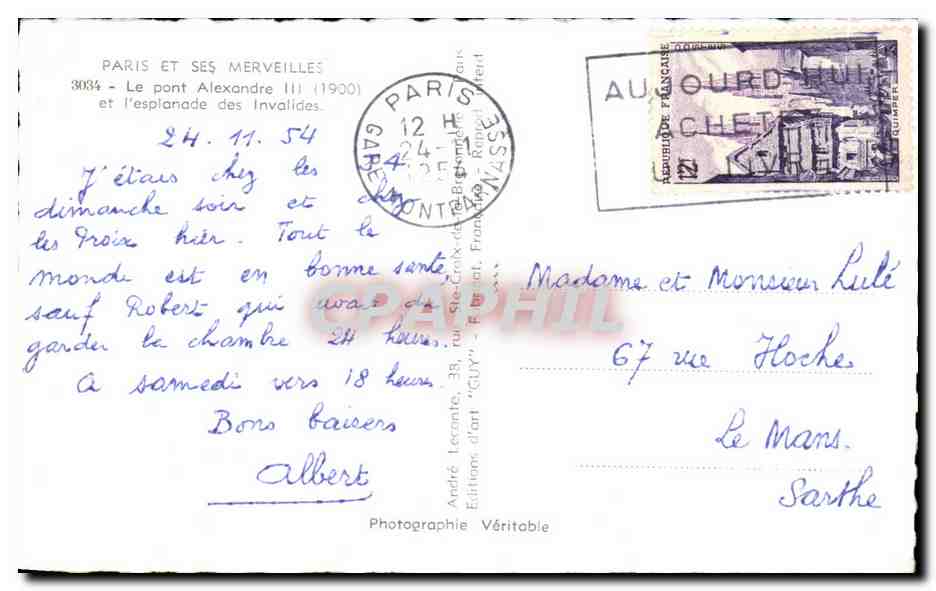 PARIS ET SES MERVEILLES
3034 - Le pont Alexandre III (1900)
et l'esplanade des Invalides.
24.11.54
J'étais chez les
dimanche soir et chez
les Proix hier. Tout le
monde est en bonne santé,
sauf Robert qui avait dû
garder la chambre 24 heures.
A samedi vers 18 heures.
Bons baisers
Albert
Photographie Véritable
André Leconte, 38, rue Ste-Croix-de-la-Bretonnerie, Paris
Editions d'art "GUY" - Fabricat. Française Reprod. Interd
PARIS
12 H
24-11
GARE MONTPARNASSE
AUJOURD'HUI
ACHETEZ
RÉPUBLIQUE FRANÇAISE
12F
QUIMPER
Madame et Monsieur Lulé
67 rue Hoche
Le Mans.
Sarthe
CPAPHIL